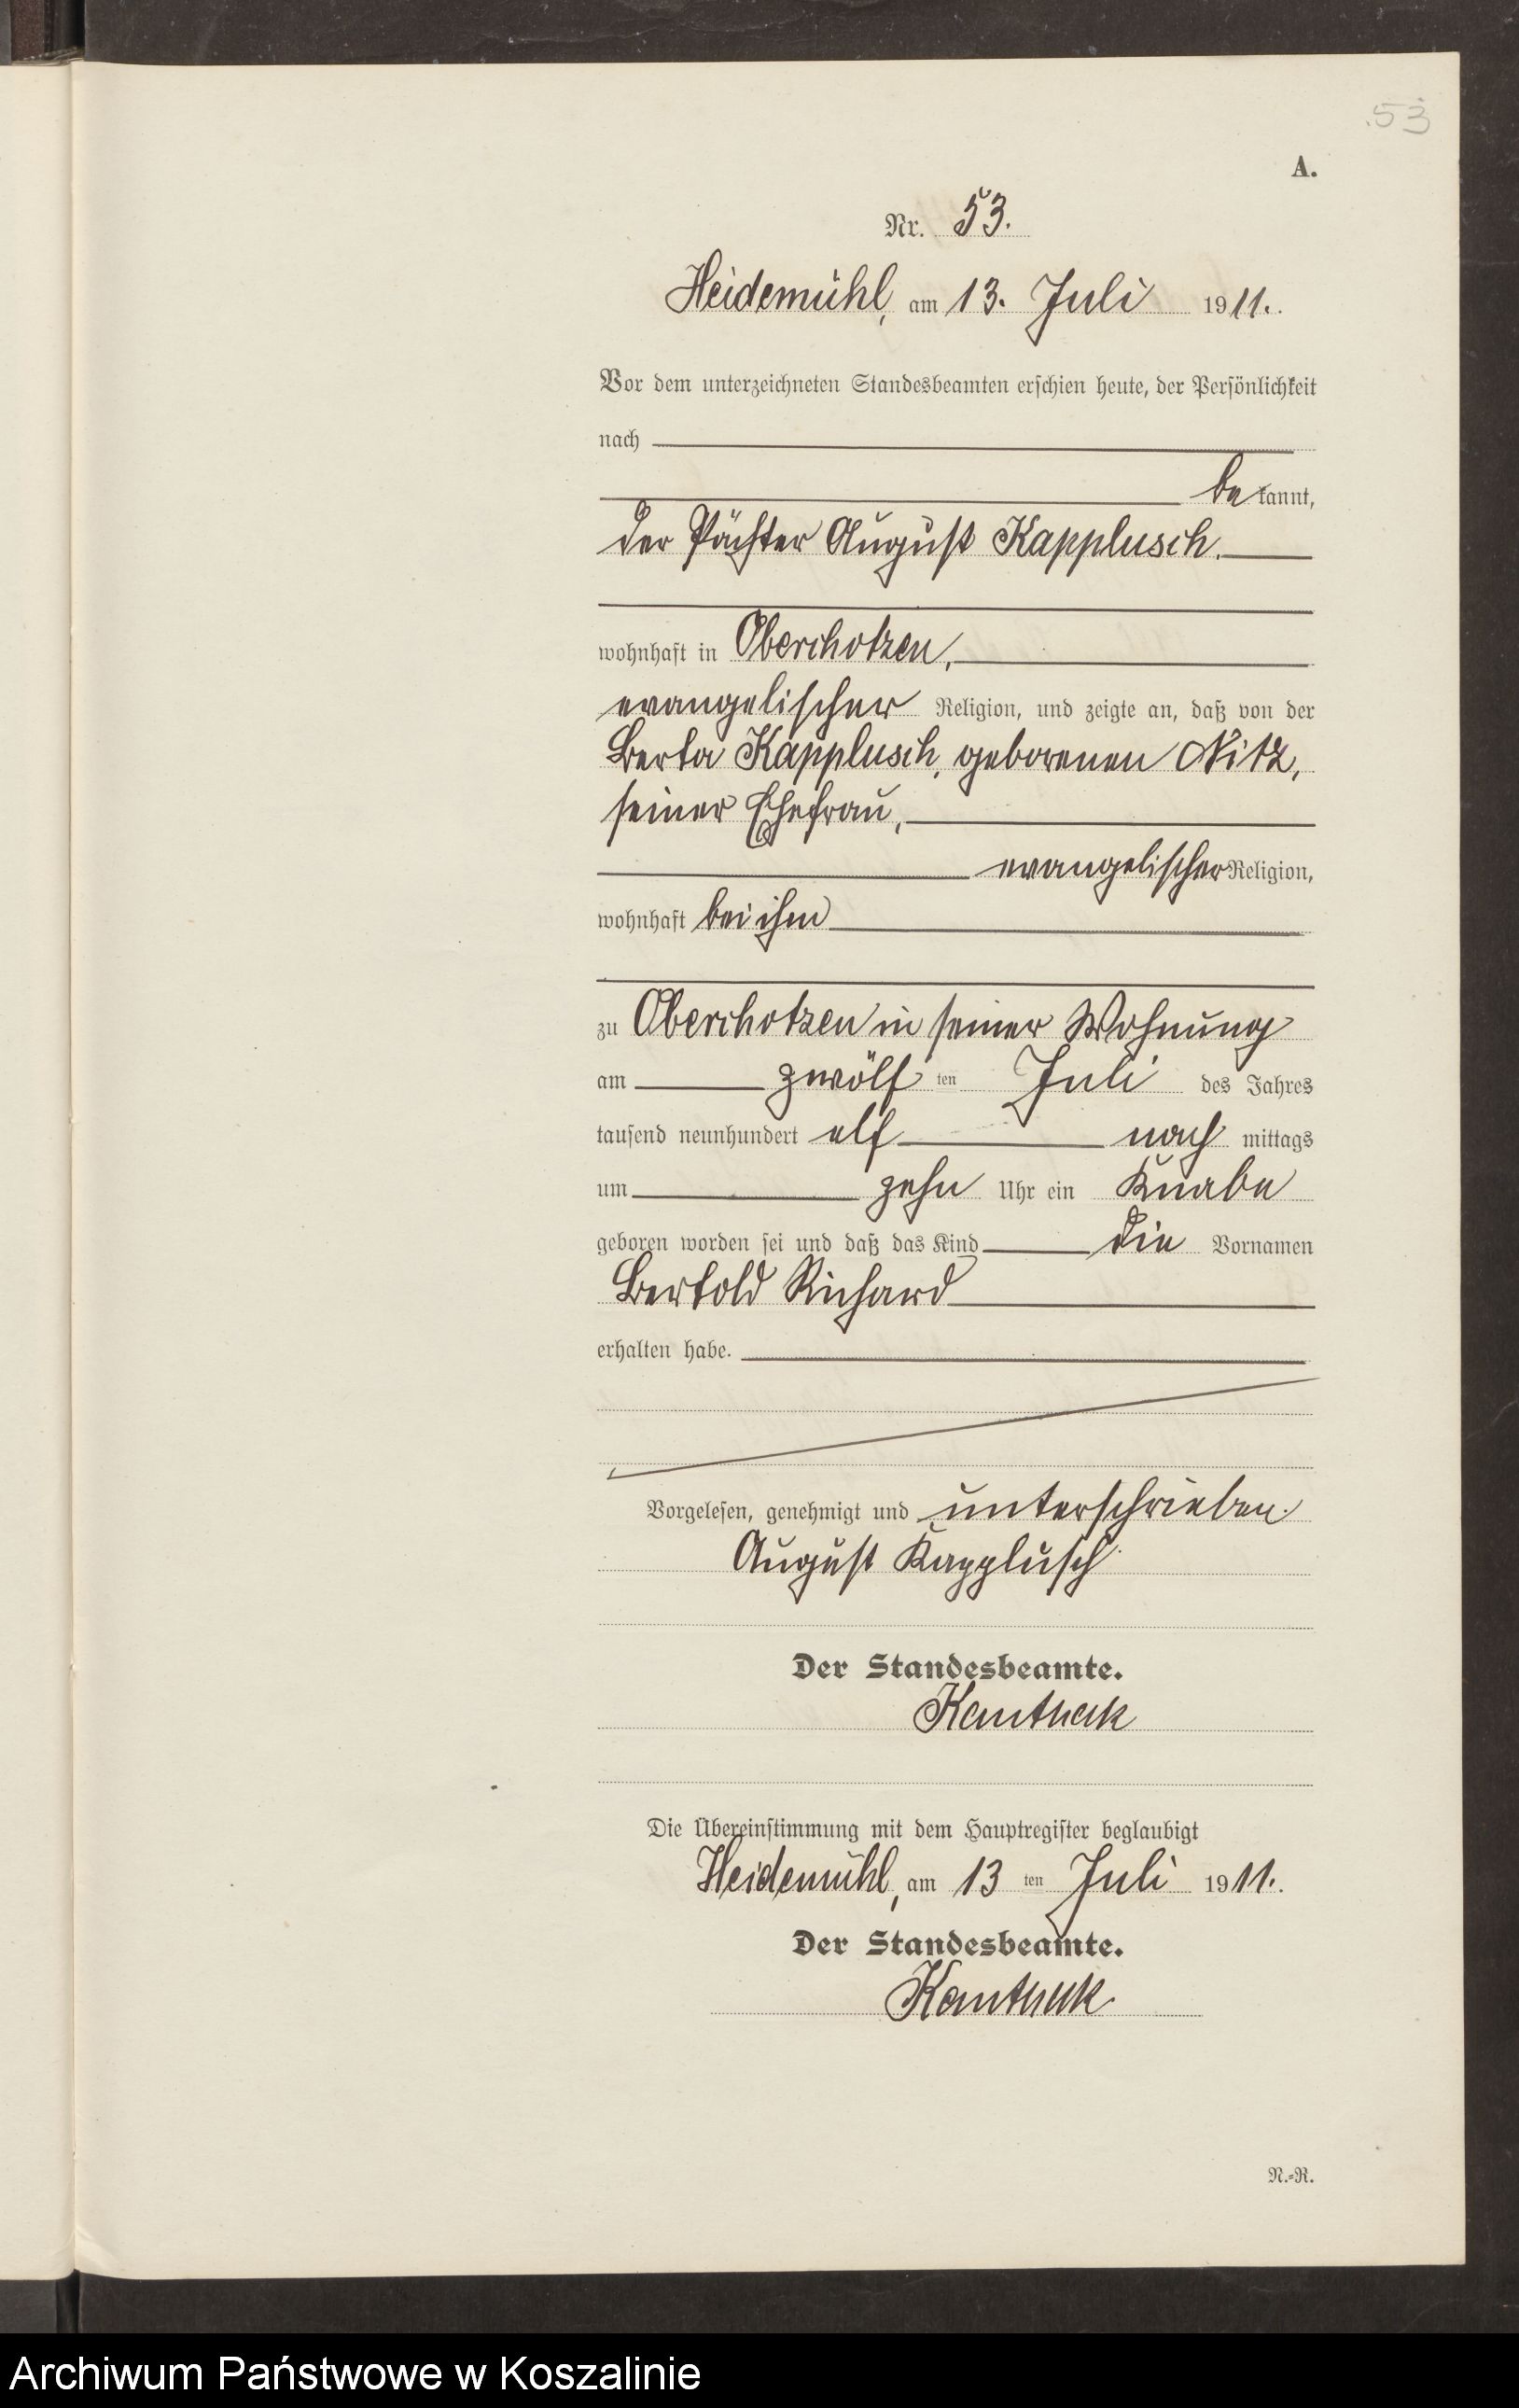 53
A.
Nr. 53.
Heidemühl, am 13. Juli 1911.
Vor dem unterzeichneten Standesbeamten erschien heute, der Persönlichkeit
nach
bekannt,
der Pächter August Kapplusch.
wohnhaft in Oberchotzen,
evangelischer Religion, und zeigte an, daß von der
Berta Kapplusch, geborenen Nitz,
seiner Ehefrau,
evangelischer Religion,
wohnhaft bei ihm
zu Oberchotzen in seiner Wohnung
am zwölf ten Juli des Jahres
tausend neunhundert elf nach mittags
um zehn Uhr ein Knabe
geboren worden sei und daß das Kind die Vornamen
Bertold Richard
erhalten habe.
Vorgelesen, genehmigt und unterschrieben.
August Kapplusch
Der Standesbeamte.
Die Übereinstimmung mit dem Hauptregister beglaubigt
Heidemühl, am 13 ten Juli 1911.
Der Standesbeamte.
N.=R.
Archiwum Państwowe w Koszalinie